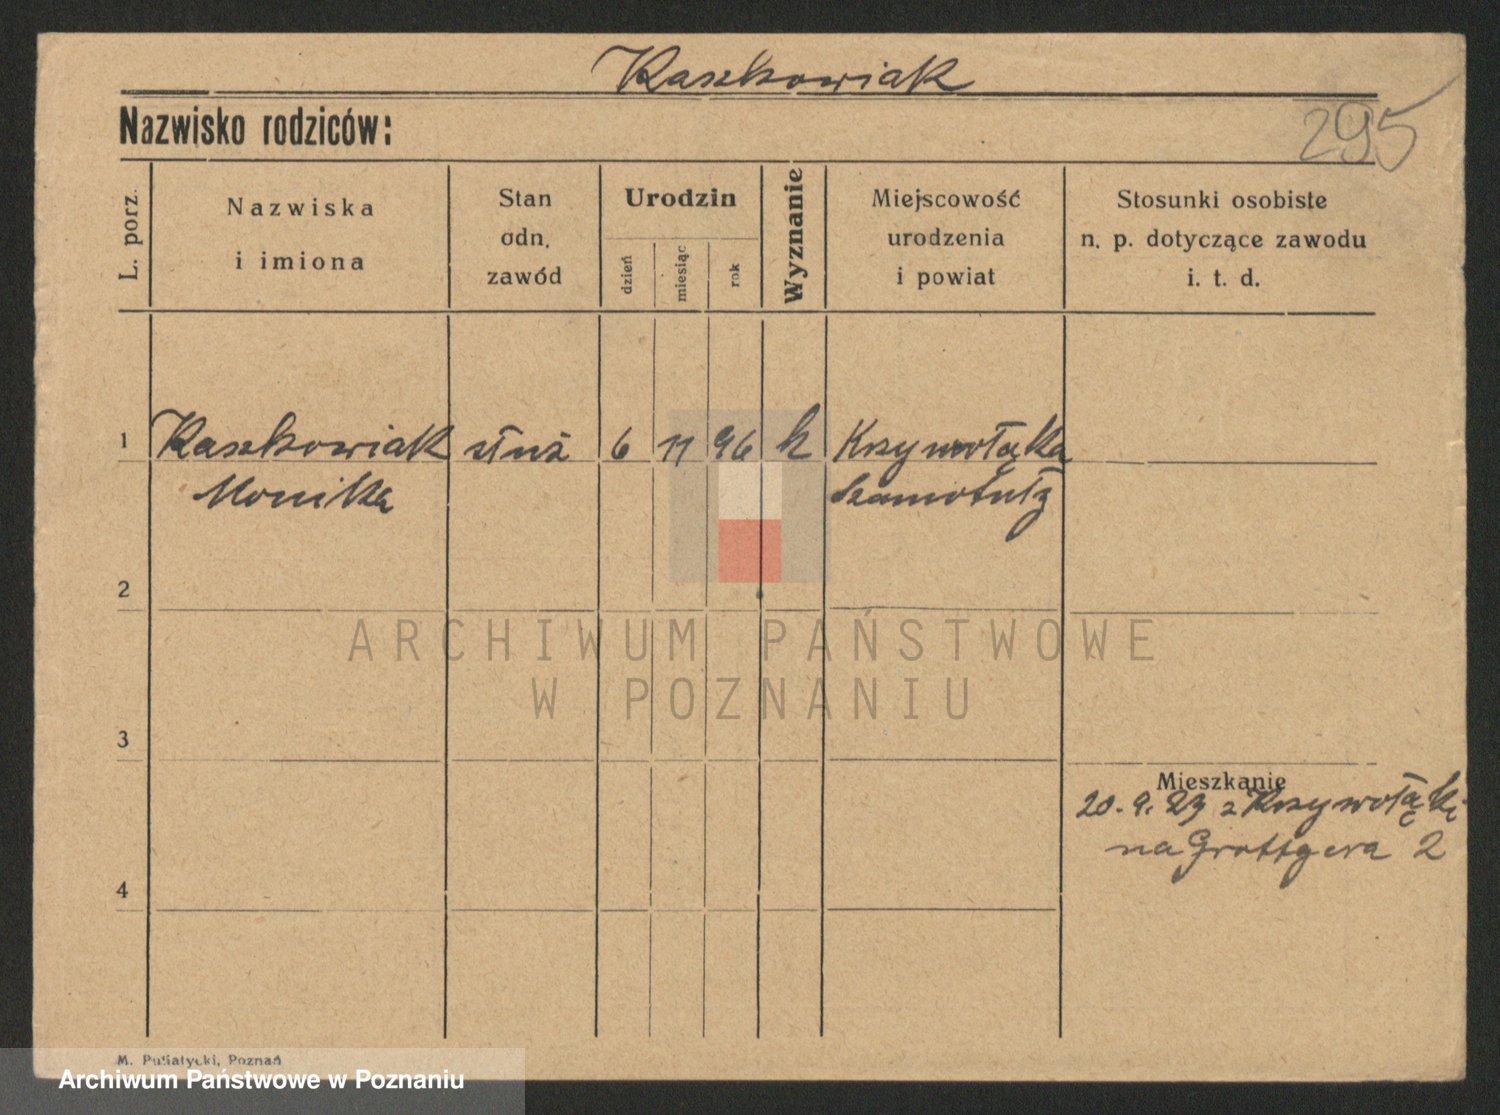 Kaszkowiak
295
Nazwisko rodziców:
L. porz.
Nazwiska
i imiona
Stan
odn.
zawód
Urodzin
dzień
miesiąc
rok
Wyznanie
Miejscowość
urodzenia
i powiat
Stosunki osobiste
n. p. dotyczące zawodu
i. t. d.
1 Kaszkowiak służ 6 11 96 k Krzywołąka
Monika Szamotuły
2
3
Mieszkanie
20.9.23 z Krzywołąki
na Grottgera 2
4
M. Putiatycki, Poznań
ARCHIWUM PAŃSTWOWE
W POZNANIU
Archiwum Państwowe w Poznaniu